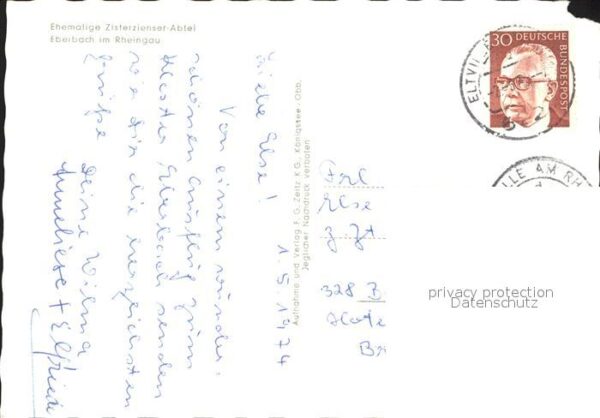 Ehemalige Zisterzienser-Abtei
Eberbach im Rheingau
1. 5. 1974
Liebe Else!
Von einem wunder-
schönen Ausflug zum
Kloster Eberbach senden
wir dir die herzlichsten
Grüße
Deine Wilma
Anneliese + Elfriede
Aufnahme und Verlag F. G. Zeitz K G., Königstee-Obb.
Jeglicher Nachdruck verboten
30 DEUTSCHE
BUNDESPOST
ELTVIL
LLE AM RH
Frl.
Else
z. Zt
328 B
privacy protection
Datenschutz